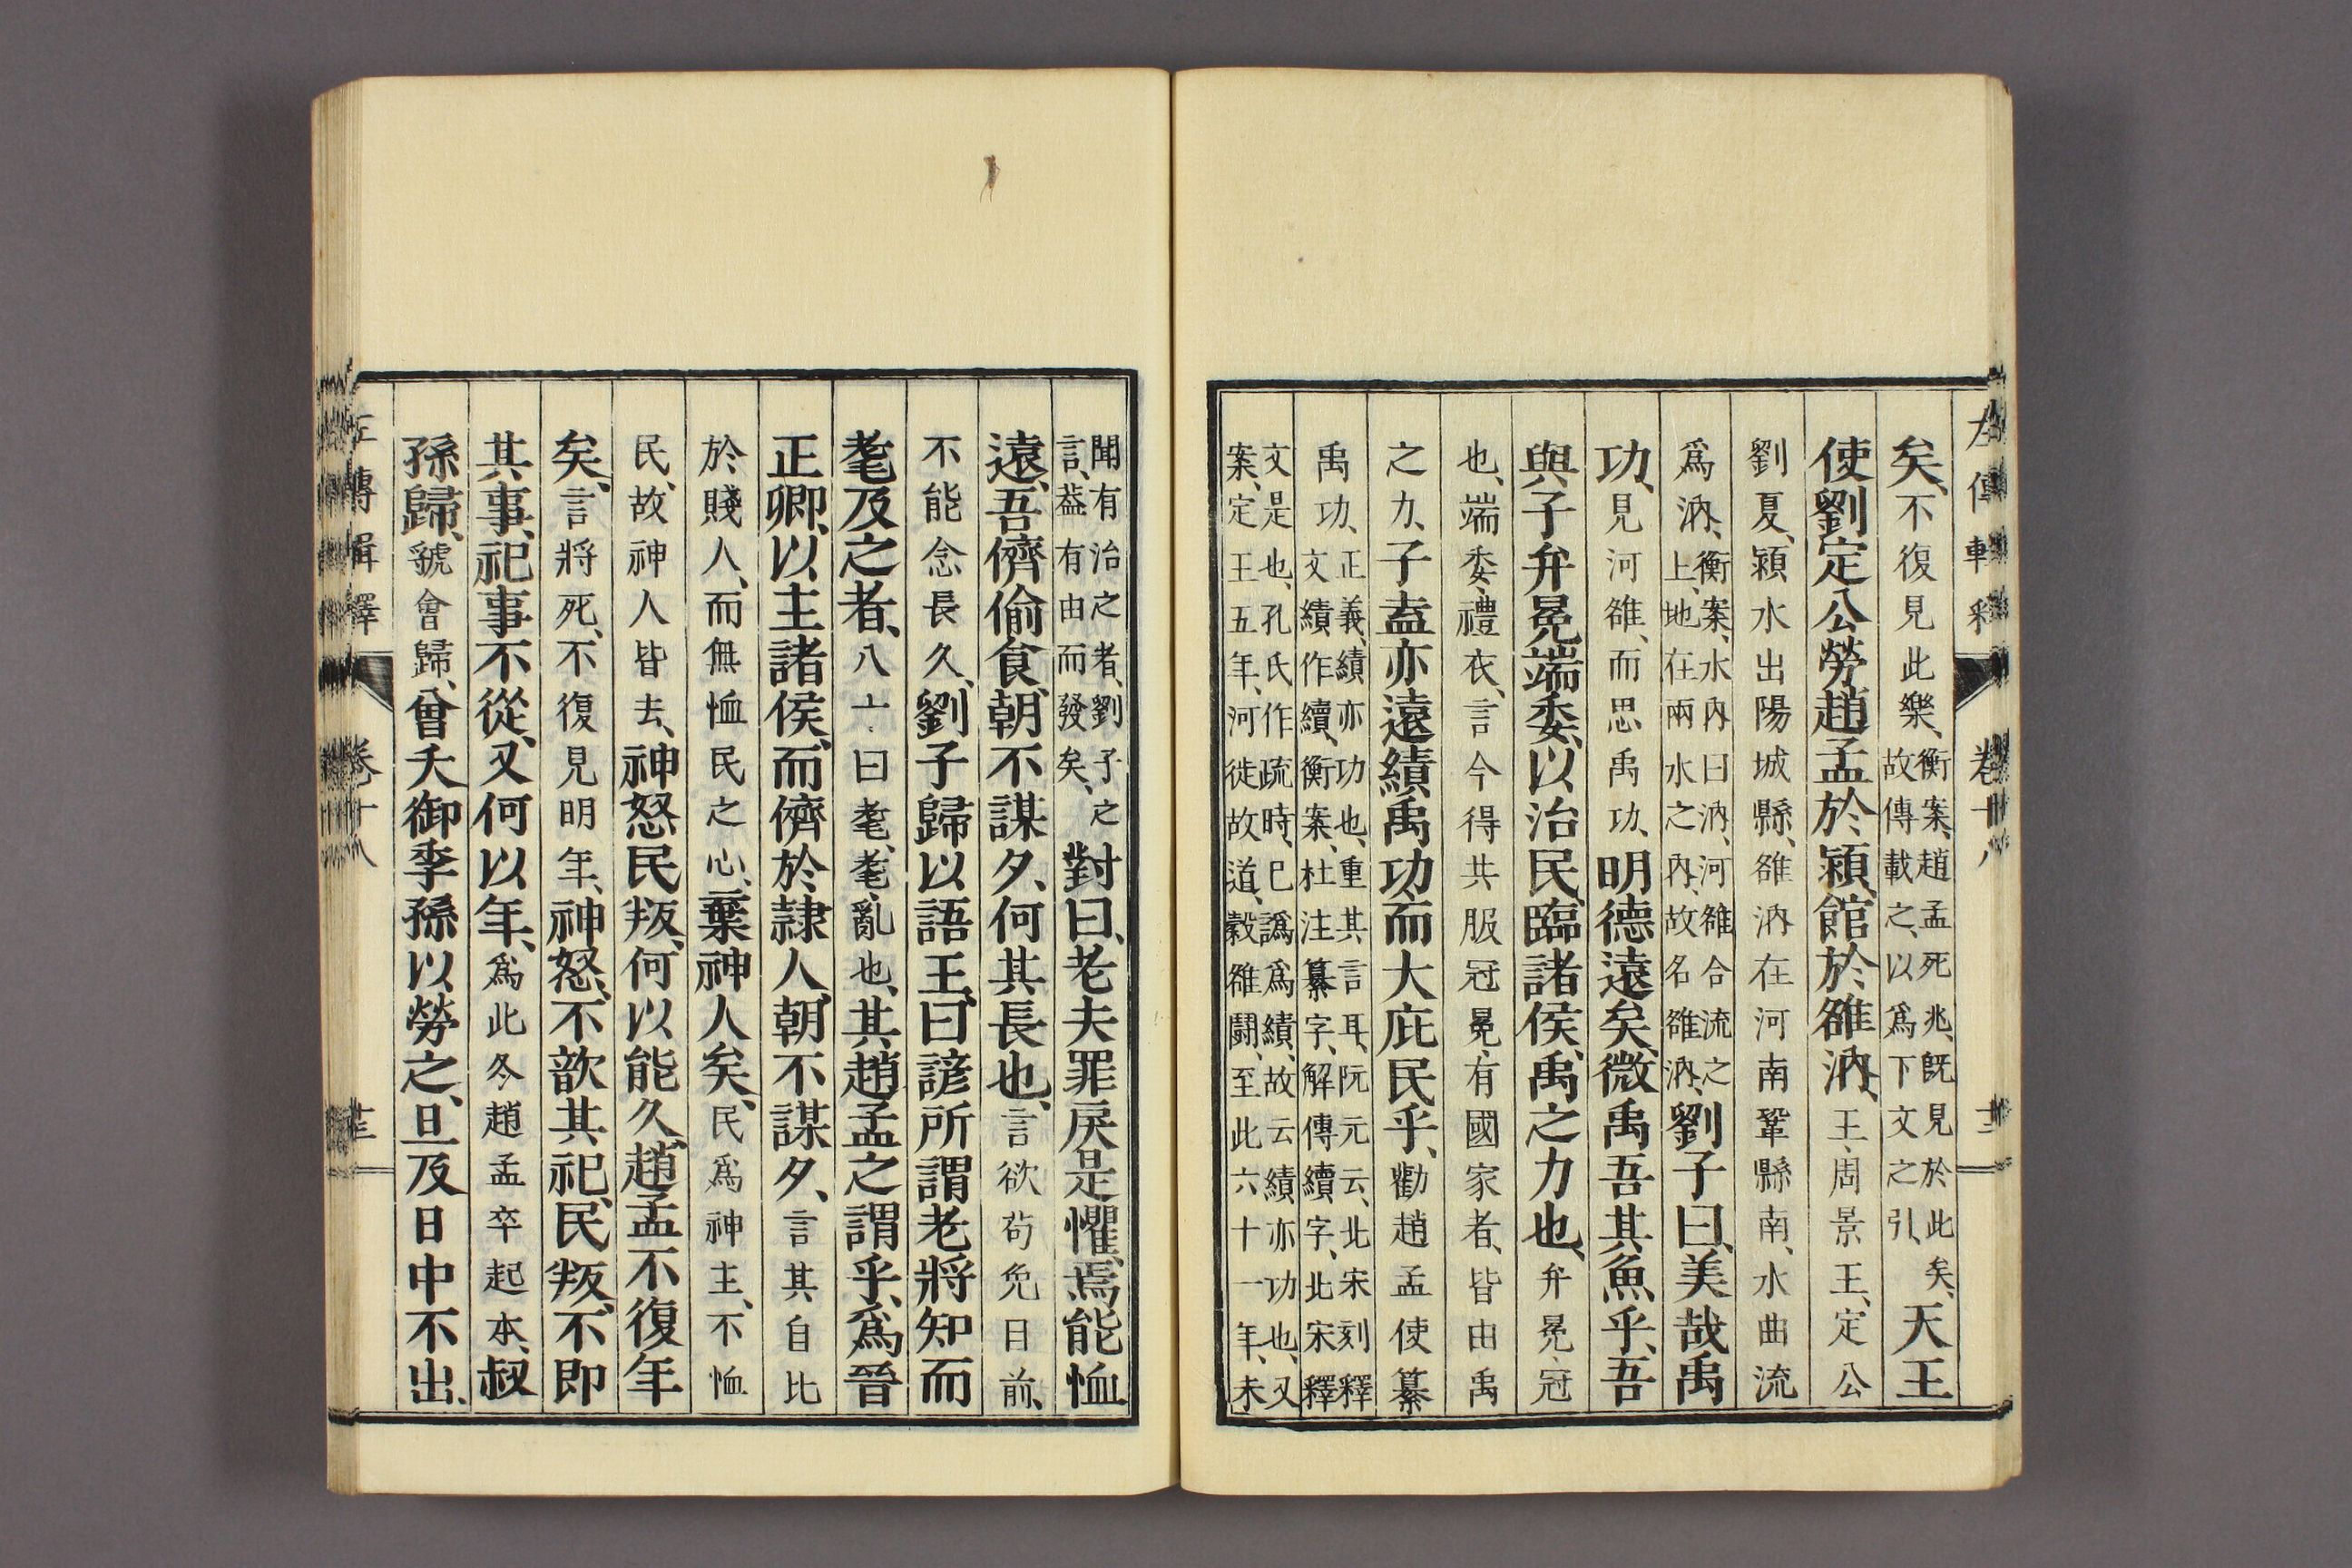 矣、不復見此樂、衡案、趙孟死兆、既見於此矣、故傳載之、以爲下文之引、天王
使劉定公勞趙孟於潁、館於雒汭、王、周景王、定公
劉夏、潁水出陽城縣、雒汭在河南鞏縣南、水曲流
爲汭、衡案、水內曰汭、河雒合流之上、地在兩水之內、故名雒汭、劉子曰、美哉禹
功、見河雒、而思禹功、明德遠矣、微禹吾其魚乎、吾
與子弁冕端委、以治民、臨諸侯、禹之力也、弁冕、冠
也、端委、禮衣、言今得共服冠冕、有國家者、皆由禹
之力、子盍亦遠績禹功、而大庇民乎、勸趙孟使纂
禹功、正義、績亦功也、重其言耳、阮元云、北宋刻釋文績作續、衡案、杜注纂字、解傳續字、北宋釋
文是也、孔氏作疏時、已譌爲績、故云績亦功也、又案、定王五年、河徙故道、穀雒鬬、至此六十一年、未
聞有治之者、劉子之言、葢有由而發矣、對曰、老夫罪戾是懼、焉能恤
遠、吾儕偷食、朝不謀夕、何其長也、言欲苟免目前、
不能念長久、劉子歸以語王、曰、諺所謂老將知而
耄及之者、八十曰耄、耄、亂也、其趙孟之謂乎、爲晉
正卿、以主諸侯、而儕於隷人、朝不謀夕、言其自比
於賤人、而無恤民之心、棄神人矣、民爲神主、不恤
民、故神人皆去、神怒民叛、何以能久、趙孟不復年
矣、言將死、不復見明年、神怒、不歆其祀、民叛、不即
其事、祀事不從、又何以年、爲此冬趙孟卒起本、叔
孫歸、虢會歸、曾夭御季孫以勞之、旦及日中不出、
左傳輯釋 卷十八